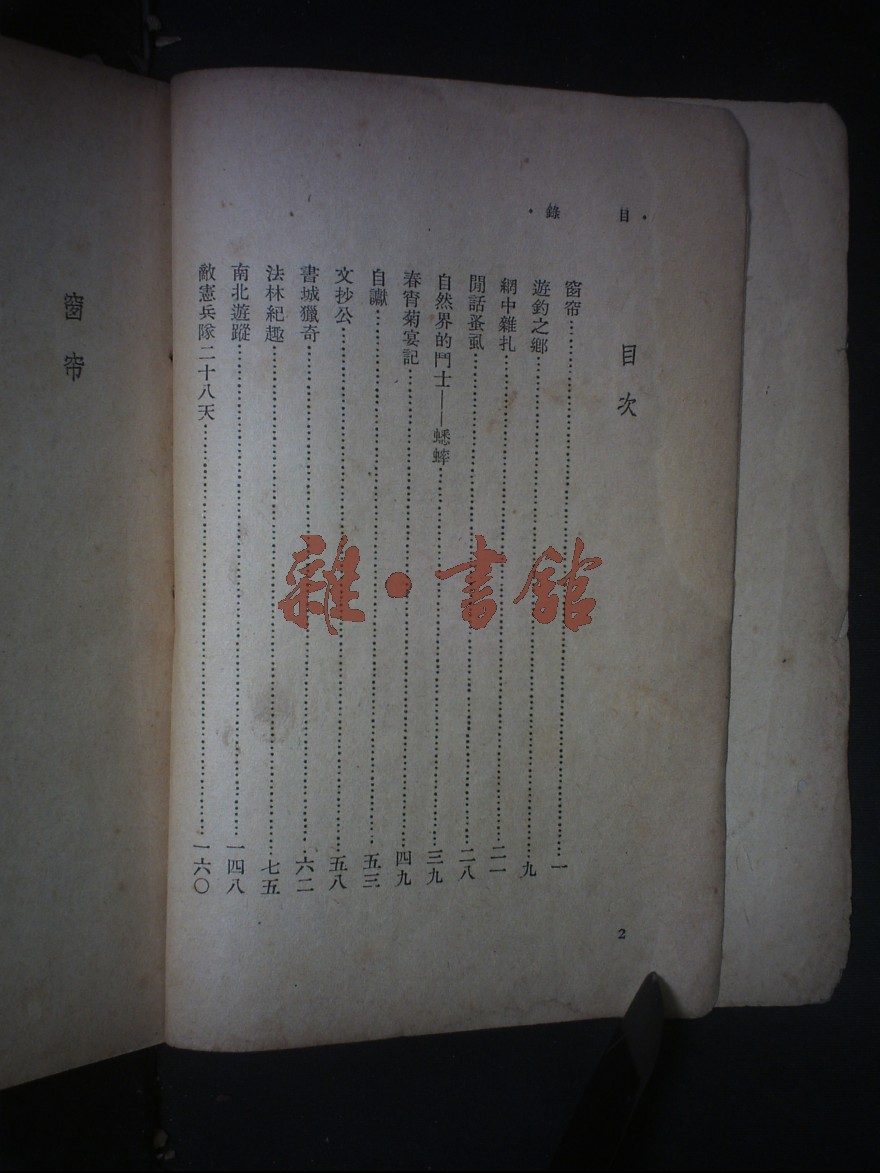 ·目錄·
目次
窗帘…………一
遊釣之鄉…………九
網中雜扎…………二一
閒話蚤虱…………二八
自然界的鬥士——蟋蟀…………三九
春宵菊宴記…………四九
自讞…………五三
文抄公…………五八
書城獵奇…………六二
法林紀趣…………七五
南北遊蹤…………一四八
敵憲兵隊二十八天…………一六〇
2
窗帘
雜·書館